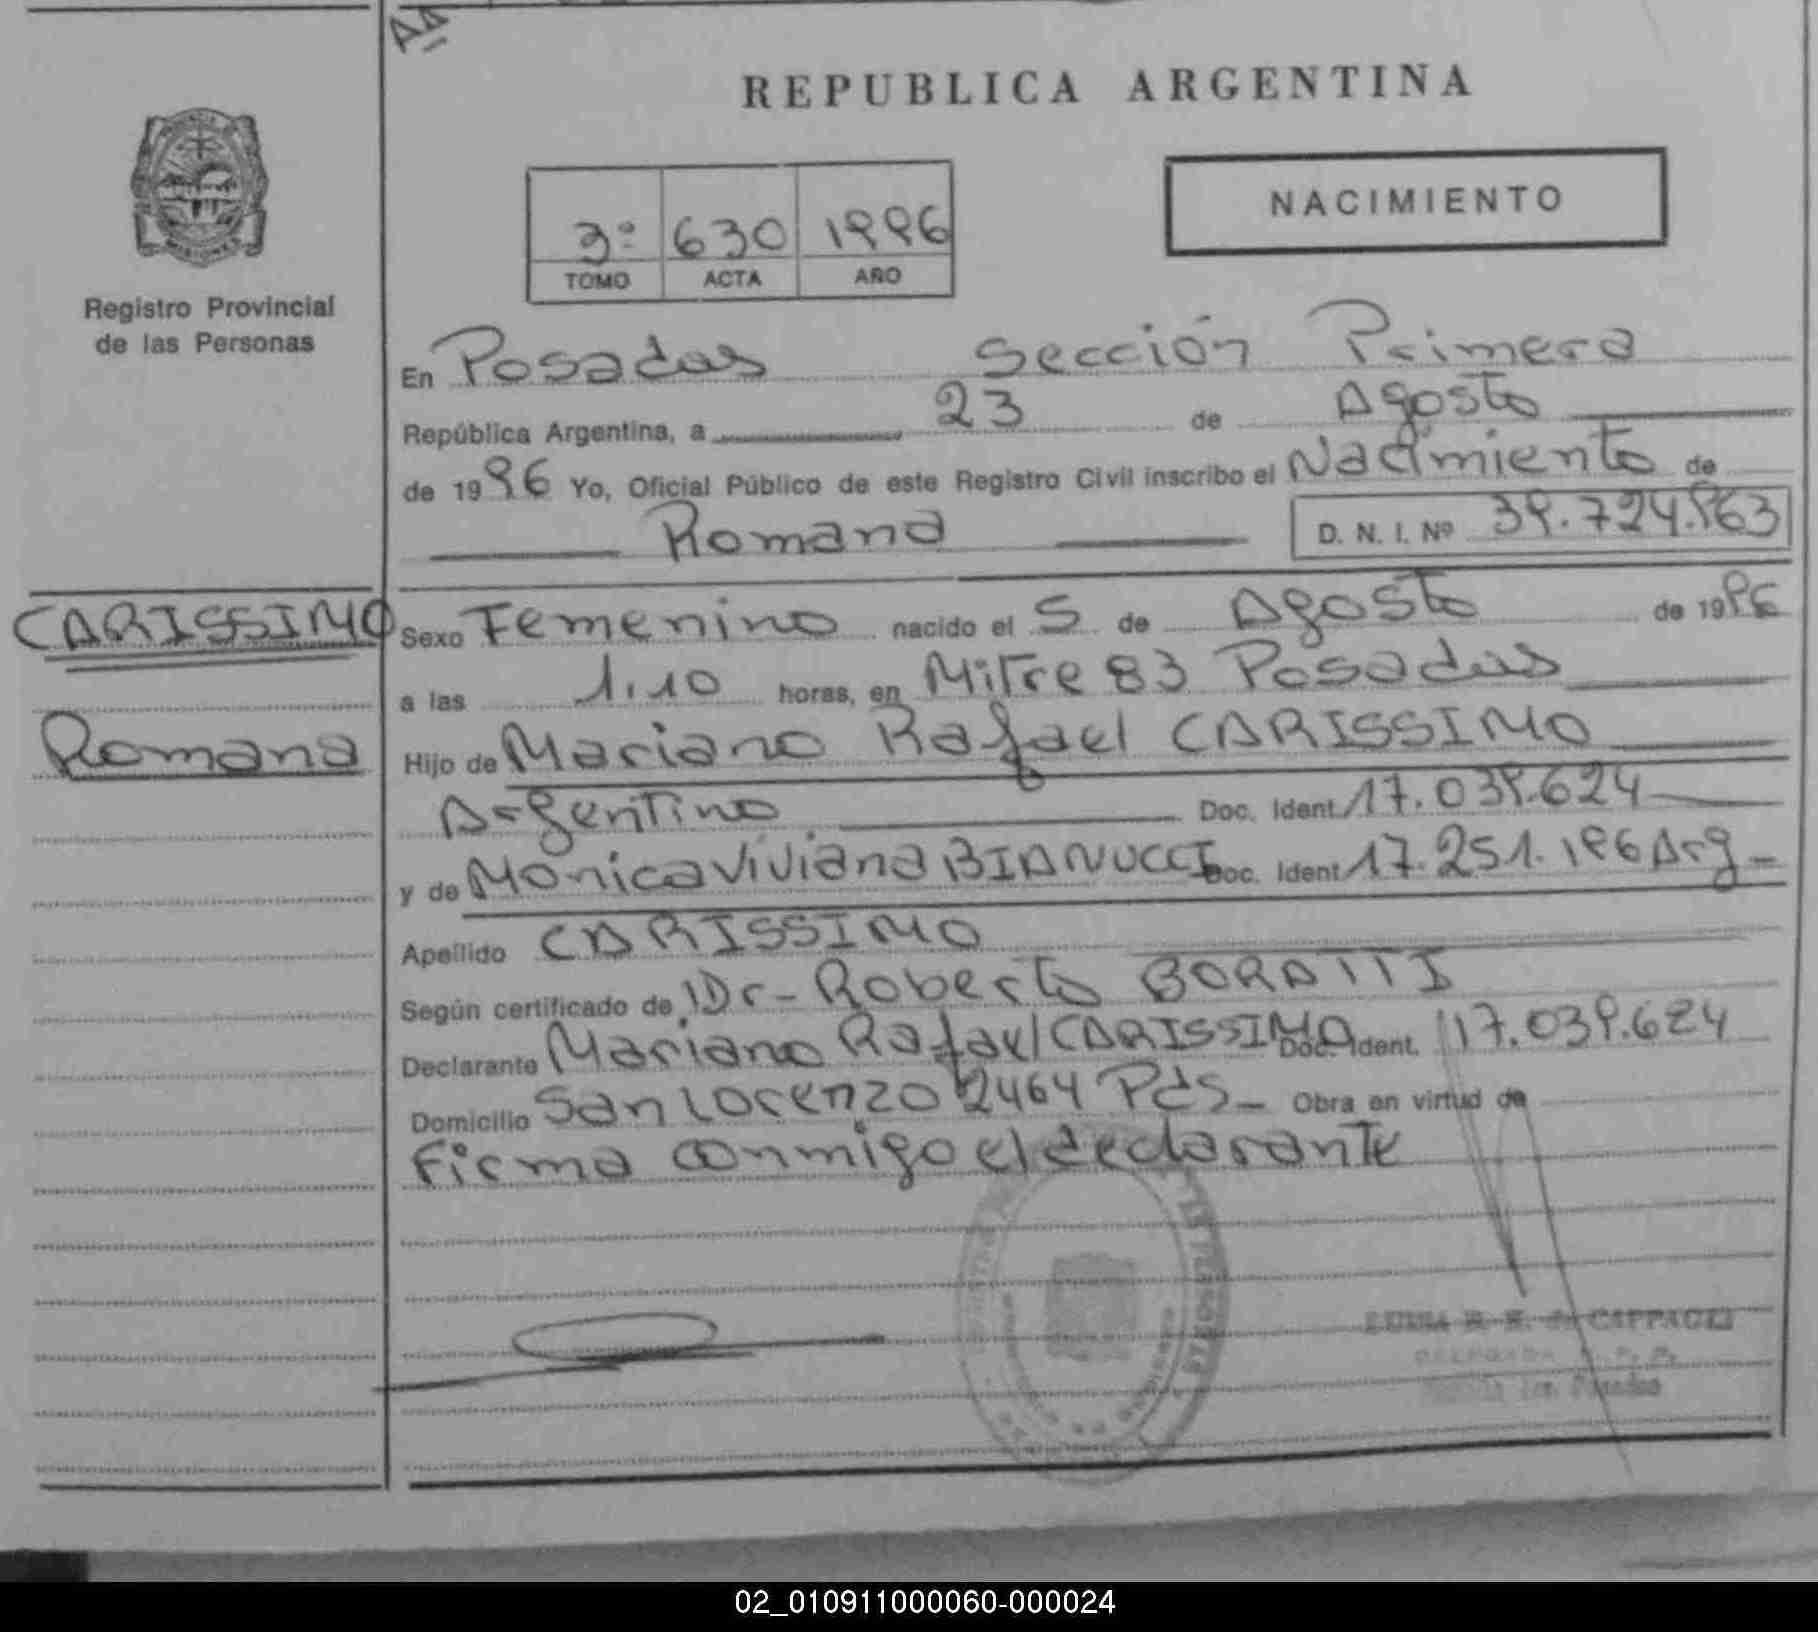 REPUBLICA ARGENTINA
NACIMIENTO
3º 630 1996
TOMO ACTA AÑO
Registro Provincial
de las Personas
En Posadas Sección Primera
República Argentina, a 23 de Agosto
de 1996 Yo, Oficial Público de este Registro Civil inscribo el Nacimiento de
Romana D. N. I. Nº 39.724.963
CARISSIMO
Sexo Femenino nacido el 5 de Agosto de 1996
a las 1.10 horas, en Mitre 83 Posadas
Romana
Hijo de Mariano Rafael CARISSIMO
Argentino Doc. Ident. 17.039.624
y de Monica Viviana BIANUCCI Doc. Ident. 17.251.196 Arg
Apellido CARISSIMO
Según certificado de Dr- Roberto BORATTI
Declarante Mariano Rafael CARISSIMO Doc. Ident. 17.039.624
Domicilio San Lorenzo 2464 Pds- Obra en virtud de
Firma conmigo el declarante
de CAPPAGLI
02_010911000060-000024